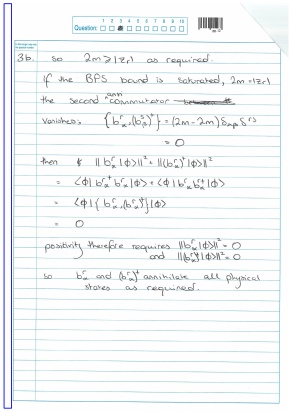 Question: 1 2 3 4 5 6 7 8 9 10
3b. so 2m ≥ |Zr| as required.
if the BPS bound is saturated, 2m = |Zr|
the second ^anti commutator
vanishes: {b^r_α, (b^s_β)^†} = (2m - 2m) δ_αβ δ^rs
= 0
then || b^r_α |Φ> ||² + || (b^r_α)^† |Φ> ||²
= <Φ| b^r_α^† b^r_α |Φ> + <Φ| b^r_α b^r_α^† |Φ>
= <Φ| {b^r_α, (b^r_α)^†} |Φ>
= 0
positivity therefore requires || b^r_α |Φ> ||² = 0
and || (b^r_α)^† |Φ> ||² = 0
so b^r_α and (b^r_α)^† annihilate all physical
states as required.